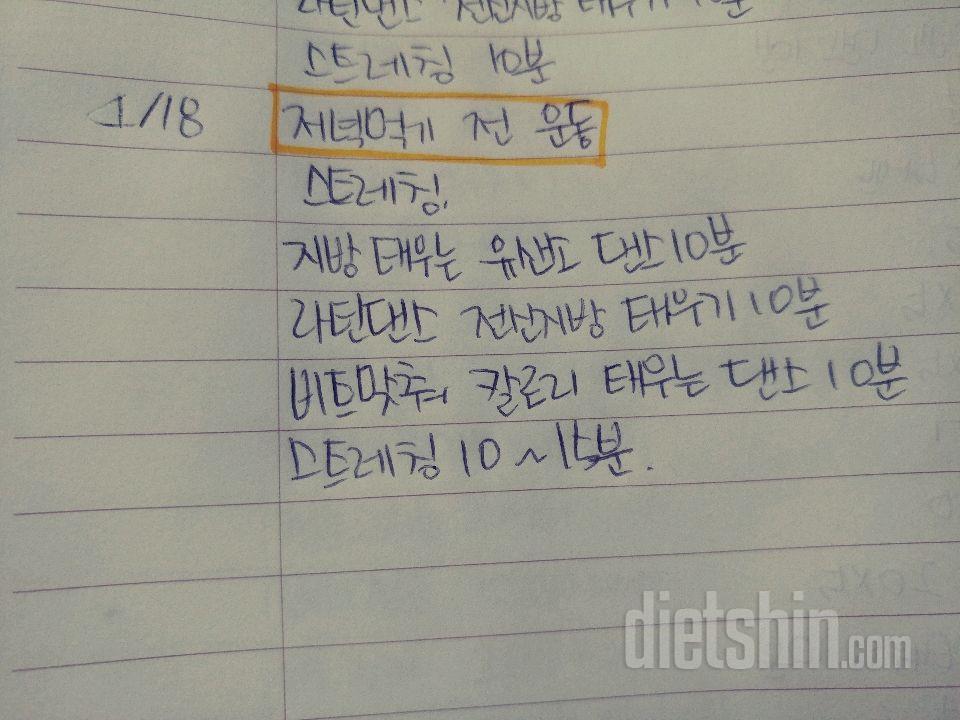 라틴댄스 전신지방 태우기 10분
스트레칭 10분
1/18 저녁먹기 전 운동
스트레칭.
지방 태우는 유산소 댄스 10분
라틴댄스 전신지방 태우기 10분
비트맞춰 칼로리 태우는 댄스 10분
스트레칭 10~15분.
dietshin.com